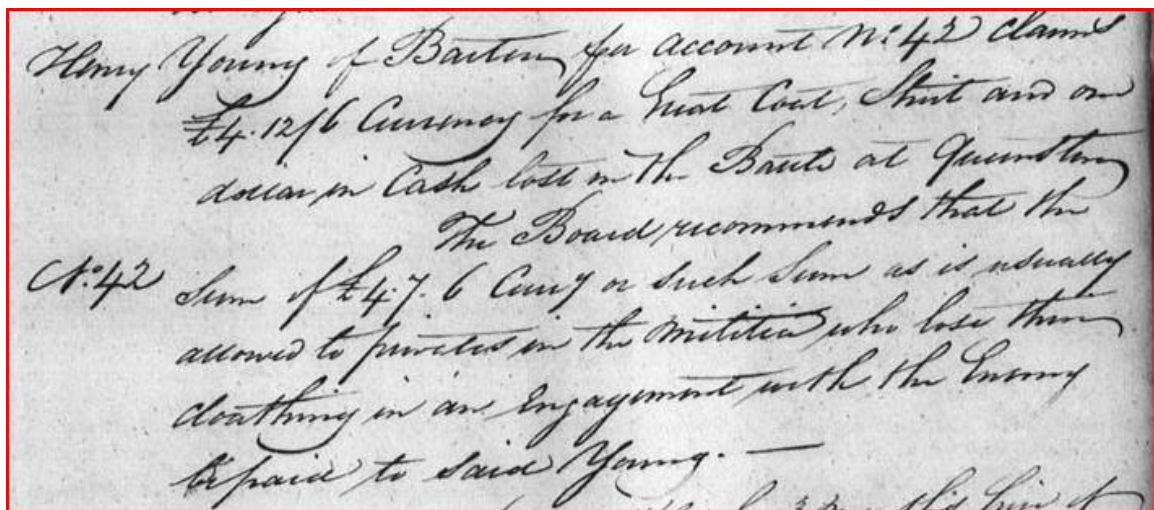 Henry Young of Barton per account No: 42 claims
£4.12/6 Currency for a Great Coat, Shirt and one
dollar in Cash lost in the Battle at Queenston
The Board recommends that the
No: 42 Sum of £4.7.6 Curry or such Sum as is usually
allowed to privates in the Militia who lose their
cloathing in an Engagement with the Enemy
be paid to said Young. —